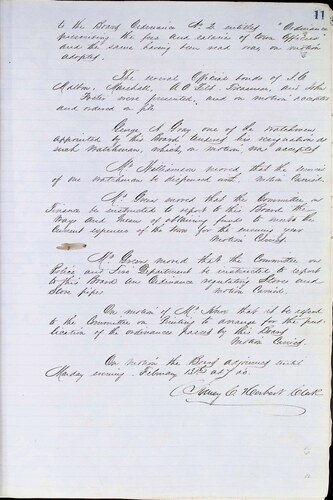 11
to the Board Ordinance No 2 entitled "Ordinance
prescribing the fees and salaries of town Officers"
and the same having been read was on motion
adopted.
The several Official bonds of J. C.
Marshall, A C Treasurer, and John
were presented, and on motion accepted
and ordered on file
George A Gray one of the Watchmen
appointed by this Board tendered his resignation as
such Watchman, which, on motion was accepted
Mr moved, that the services
of one watchman be dispensed with Motion Carried.
Mr Green moved that the Committee on
Finance be instructed to report to this Board the
Ways and Means of obtaining funds to meet the
current expenses of the town for the ensuing year
Motion Carried.
Mr Green moved that the Committee on
Police and Fire Department be instructed to report
to this Board an Ordinance regulating Stoves and
Stove pipes Motion Carried.
On motion of Mr that it be referred
to the Committee on Printing to arrange for the pub-
lication of the ordinances passed by this Board
Motion Carried.
On motion the Board adjourned until
Monday evening February 13th at 7
Herbert Clerk